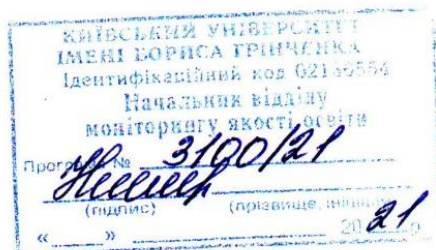 КИЇВСЬКИЙ УНІВЕРСИТЕТ
ІМЕНІ БОРИСА ГРІНЧЕНКА
Ідентифікаційний код 02136554
Начальник відділу
моніторингу якості освіти
Програма № 3100/21
(підпис) (прізвище,
« » 20 21